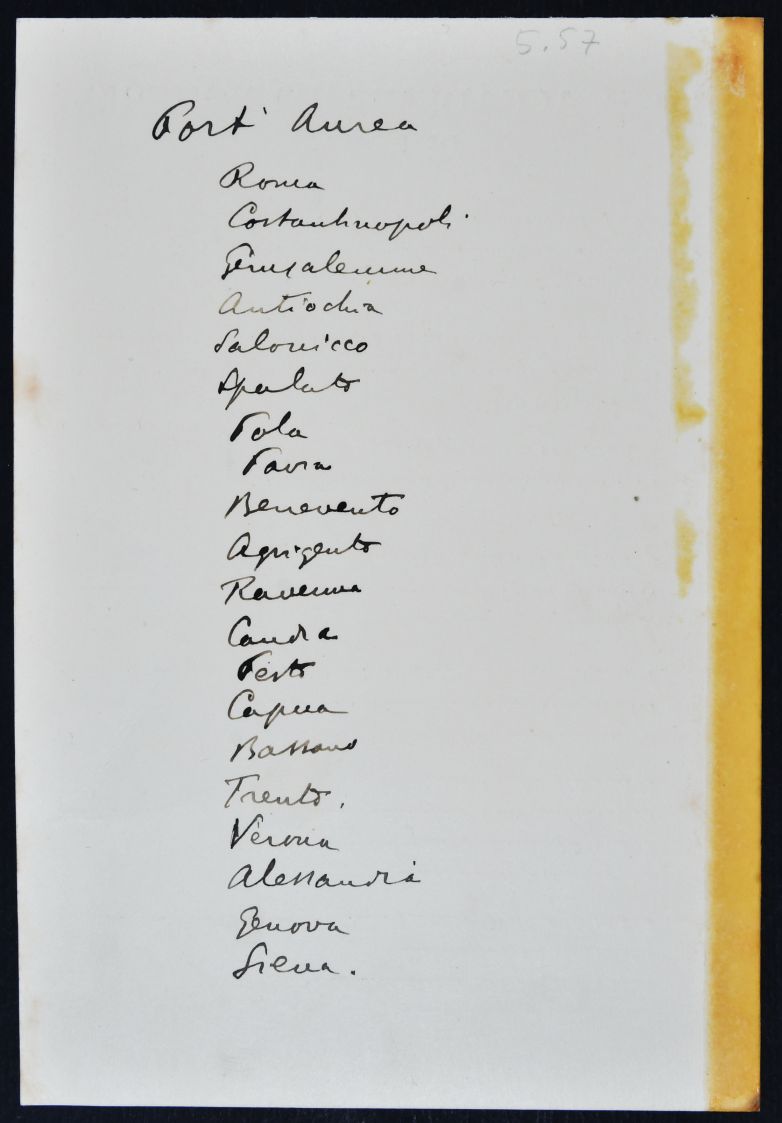 5.57
Port' Aurea
Roma
Costantinopoli
Gerusalemme
Antiochia
Salonicco
Spalato
Pola
Pavia
Benevento
Agrigento
Ravenna
Candia
Festo
Capua
Bassano
Trento.
Verona
Alessandria
Genova
Siena.